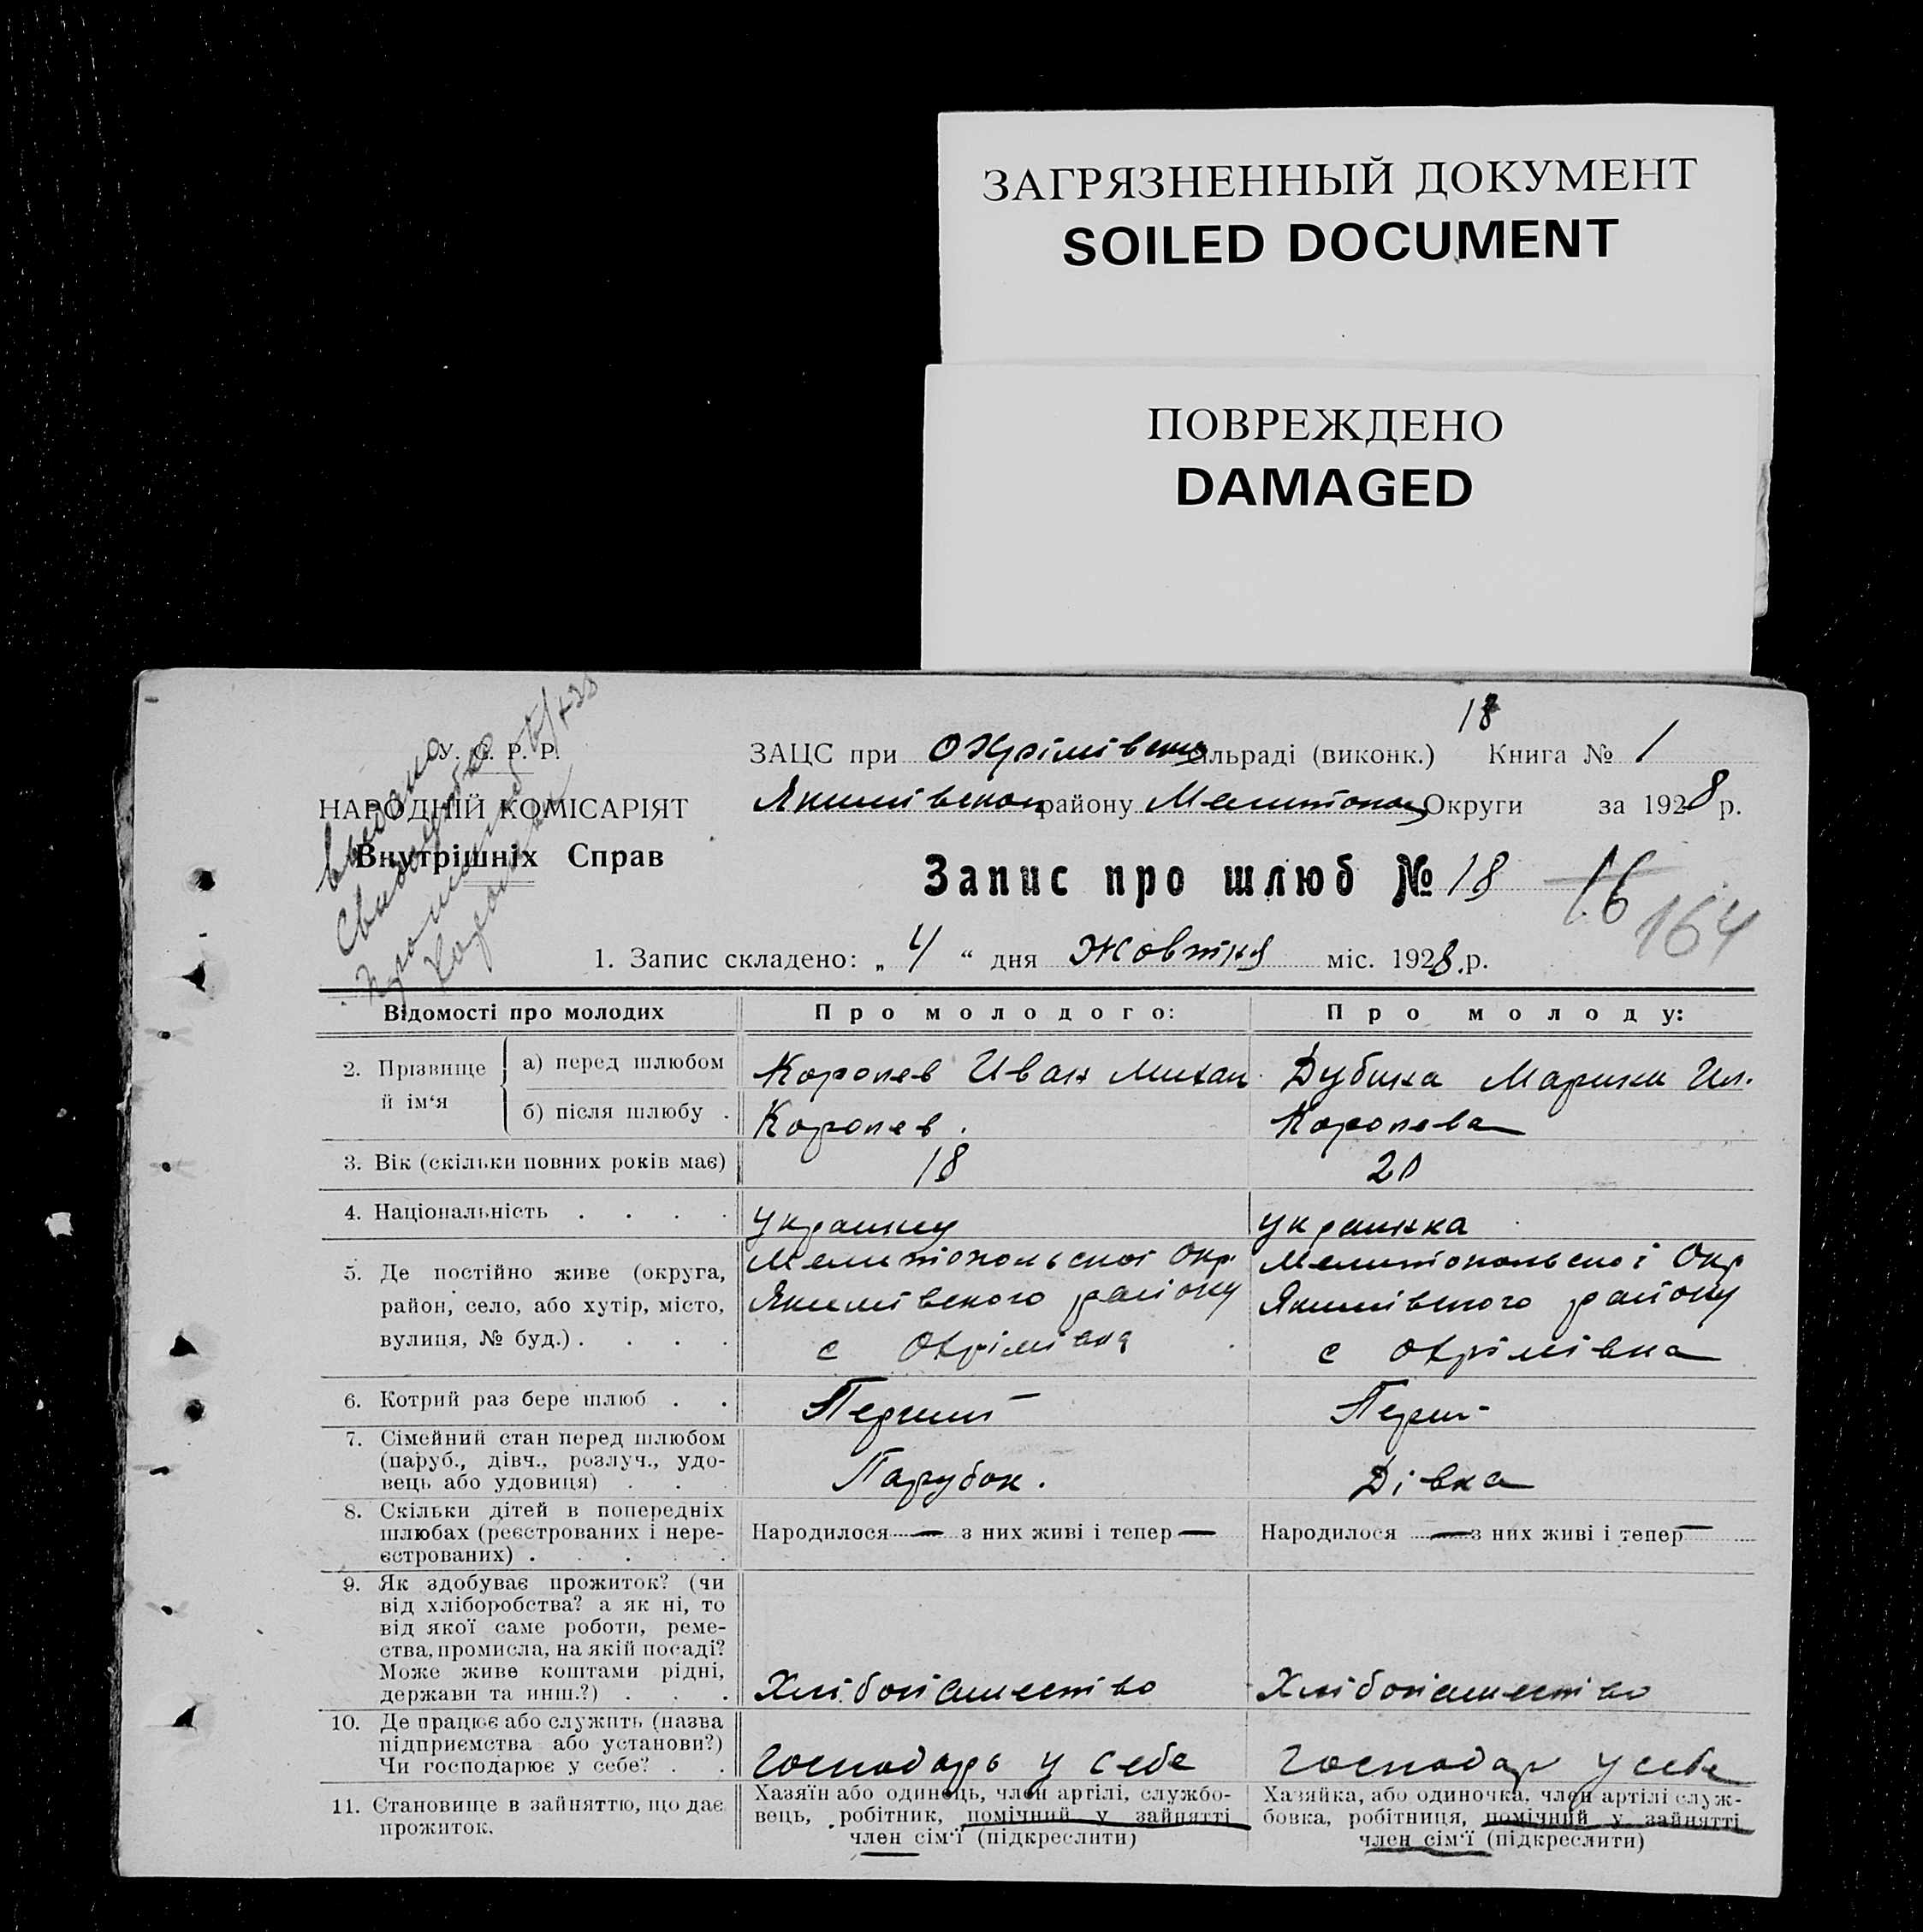 ЗАГРЯЗНЕННЫЙ ДОКУМЕНТ
SOILED DOCUMENT
ПОВРЕЖДЕНО
DAMAGED
18
У. С. Р. Р.
ЗАЦС при Охрімівськ сільраді (виконк.) Книга № 1
НАРОДНІЙ КОМІСАРІЯТ
Якимівськом району Мелитопол Округи за 1928 р.
Внутрішніх Справ
Запис про шлюб № 18 16
164
1. Запис складено: „ 4 “ дня Жовтня міс. 1928 р.
Відомості про молодих Про молодого: Про молоду:
2. Прізвище й ім‘я а) перед шлюбом Коропев Иван Михаи Дубина Марина Ил.
б) після шлюбу . Коропев. Коропева
3. Вік (скільки повних років має) 18 20
4. Національність . . . . украинц украинка
5. Де постійно живе (округа, Мелитопольскої Окр. Мелитопольскої Окр
район, село, або хутір, місто, Якимівского району Якимівского району
вулиця, № буд.) . . . . с Охрімівка с Охрімівка
6. Котрий раз бере шлюб . . Перший Перш-
7. Сімейний стан перед шлюбом
(паруб., дівч., розлуч., удо-
вець або удовиця) . . . Парубок. Дівка
8. Скільки дітей в попередніх
шлюбах (реєстрованих і нере- Народилося — з них живі і тепер — Народилося — з них живі і тепер —
єстрованих) . . . .
9. Як здобуває прожиток? (чи
від хліборобства? а як ні, то
від якої саме роботи, реме-
ства, промисла, на якій посаді?
Може живе коштами рідні,
держави та инш.?) . . . Хлібопашество Хлібопашество
10. Де працює або служить (назва
підприємства або установи?)
Чи господарює у себе? . . Господарь у себе Господар у себе
11. Становище в зайняттю, що дає Хазяїн або одинець, член артілі, службо- Хазяйка, або одиночка, член артілі служ-
прожиток. вець, робітник, помічний у зайнятті бовка, робітниця, помічний у зайнятті
член сім‘ї (підкреслити) член сім‘ї (підкреслити)